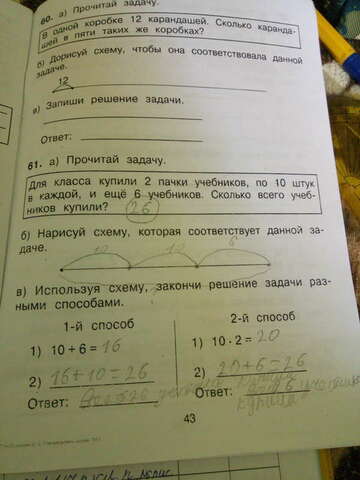 60. а) Прочитай задачу.
В одной коробке 12 карандашей. Сколько каранда-
шей в пяти таких же коробках?
б) Дорисуй схему, чтобы она соответствовала данной
задаче.
12
в) Запиши решение задачи.
Ответ:
61. а) Прочитай задачу.
Для класса купили 2 пачки учебников, по 10 штук
в каждой, и ещё 6 учебников. Сколько всего учеб-
ников купили? 26
б) Нарисуй схему, которая соответствует данной за-
даче.
10 10 6
в) Используя схему, закончи решение задачи раз-
ными способами.
1-й способ
1) 10 + 6 = 16
2) 16+10=26
Ответ:
2-й способ
1) 10 · 2 = 20
2) 20+6=26
Ответ:
43